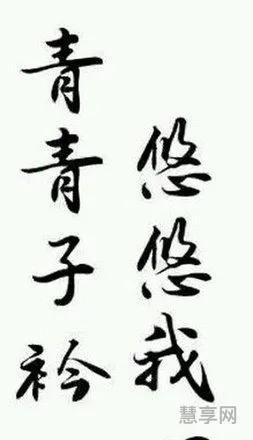 青青子衿
悠悠我
慧享网